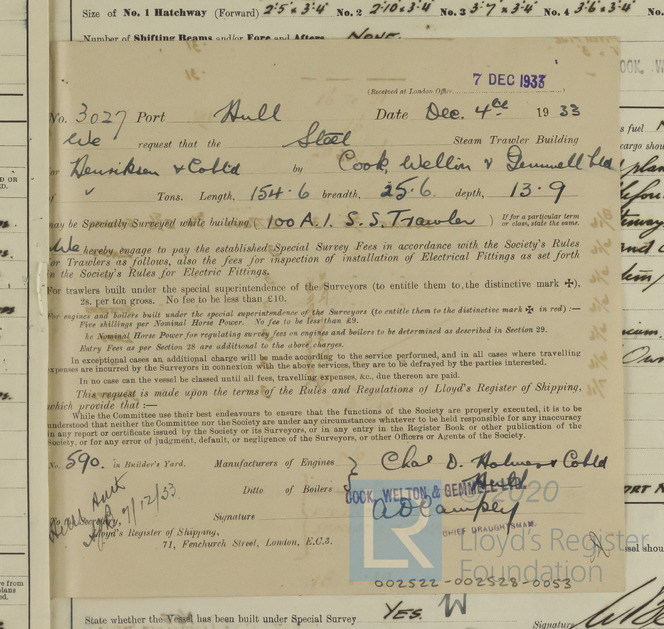 Size of No. 1 Hatchway (Forward) 2'5" x 3'4" No. 2 2'10" x 3'4" No. 3 3'7" x 3'4" No. 4 3'6" x 3'4" No.
Number of Shifting Beams and/or Fore and Afters NONE.
7 DEC 1933
(Received at London Office
No. 3027 Port Hull Date Dec. 4th 1933
We request that the Steel Steam Trawler Building
or Henriksen & Co Ltd by Cook, Wellin & Gemmell Ltd
of Tons. Length, 154.6 breadth, 25.6 depth, 13.9
may be Specially Surveyed while building (100 A.1. S.S. Trawler) If for a particular term or class, state the same.
We hereby engage to pay the established Special Survey Fees in accordance with the Society's Rules
for Trawlers as follows, also the fees for inspection of installation of Electrical Fittings as set forth
in the Society's Rules for Electric Fittings.
For trawlers built under the special superintendence of the Surveyors (to entitle them to the distinctive mark ✠),
2s. per ton gross. No fee to be less than £10.
For engines and boilers built under the special superintendence of the Surveyors (to entitle them to the distinctive mark ✠ in red) :—
Five shillings per Nominal Horse Power. No fee to be less than £9.
he Nominal Horse Power for regulating survey fees on engines and boilers to be determined as described in Section 29.
Entry Fees as per Section 28 are additional to the above charges.
In exceptional cases an additional charge will be made according to the service performed, and in all cases where travelling
expenses are incurred by the Surveyors in connexion with the above services, they are to be defrayed by the parties interested.
In no case can the vessel be classed until all fees, travelling expenses, &c., due thereon are paid.
This request is made upon the terms of the Rules and Regulations of Lloyd's Register of Shipping,
which provide that :—
While the Committee use their best endeavours to ensure that the functions of the Society are properly executed, it is to be
understood that neither the Committee nor the Society are under any circumstances whatever to be held responsible for any inaccuracy
in any report or certificate issued by the Society or its Surveyors, or in any entry in the Register Book or other publication of the
Society, or for any error of judgment, default, or negligence of the Surveyors, or other Officers or Agents of the Society.
No. 590. in Builder's Yard. Manufacturers of Engines } Chas D. Holmes & Co Ltd
Ditto of Boilers } Hull
COOK, WELTON & GEMMELL LTD.
© 2020
Signature
CHIEF DRAUGHTSMAN.
7/12/33
To the Secretary,
Lloyd's Register of Shipping,
71, Fenchurch Street, London, E.C.3.
LR Lloyd's Register
Foundation
002522-002528-0053
State whether the Vessel has been built under Special Survey YES.
Signature